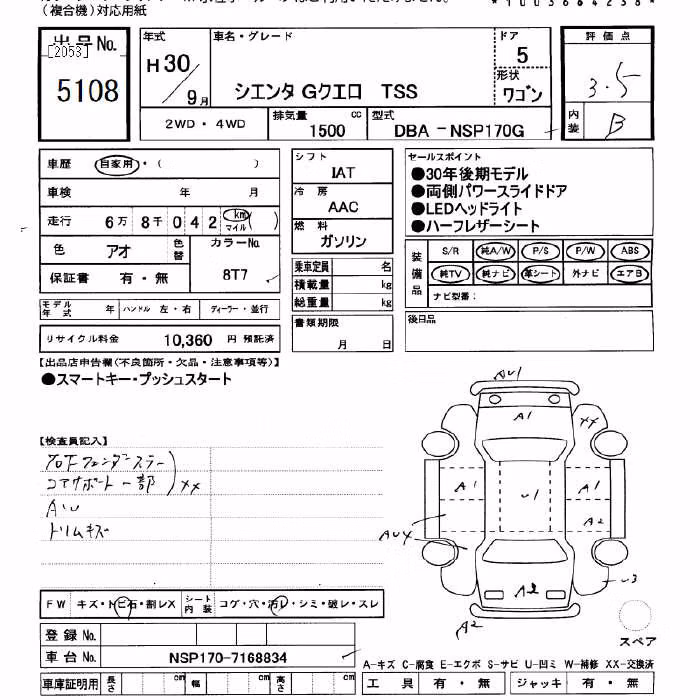 (複合機)対応用紙
*1003684238*
出品No.
[2053]
5108
年式
H30/9月
車名・グレード
シエンタ Gクエロ TSS
ドア
5
形状
ワゴン
評価点
3.5
内装
B
2WD・4WD
排気量
1500 cc
型式
DBA-NSP170G
車歴 自家用・( )
車検 年 月
走行 6万8千042 km マイル ( )
色 アオ 色替 カラーNo. 8T7
保証書 有・無
モデル年式 年 ハンドル 左・右 ディーラー・並行
リサイクル料金 10,360 円 預託済
シフト
IAT
冷房
AAC
燃料
ガソリン
乗車定員 名
積載量 kg
総重量 kg
書類期限
月 日
セールスポイント
●30年後期モデル
●両側パワースライドドア
●LEDヘッドライト
●ハーフレザーシート
装備品 S/R 純A/W P/S P/W ABS
純TV 純ナビ 革シート 外ナビ エアB
ナビ型番:
後日品
【出品店申告欄(不良箇所・欠品・注意事項等)】
●スマートキー・プッシュスタート
【検査員記入】
フェンダーステー
コアサポート一部 XX
AU
トリムキズ
AU1
A1
XX
A1
U1
A1
A2
AU4
A2
U3
A2
スペア
FW キズ・トビ石・割レX シート内装 コゲ・穴・汚レ・シミ・破レ・スレ
登録No.
車台No. NSP170-7168834
車庫証明用 長さ cm 幅 cm 高さ cm
A-キズ C-腐食 E-エクボ S-サビ U-凹ミ W-補修 XX-交換済
工具 有・無 ジャッキ 有・無